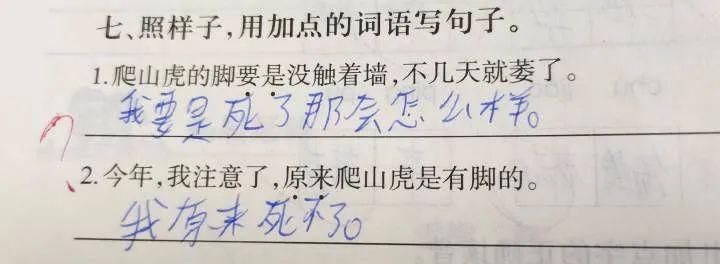 七、照样子，用加点的词语写句子。
1.爬山虎的脚要是没触着墙，不几天就萎了。
我要是死了那会怎么样。
2.今年，我注意了，原来爬山虎是有脚的。
我原来死不了。